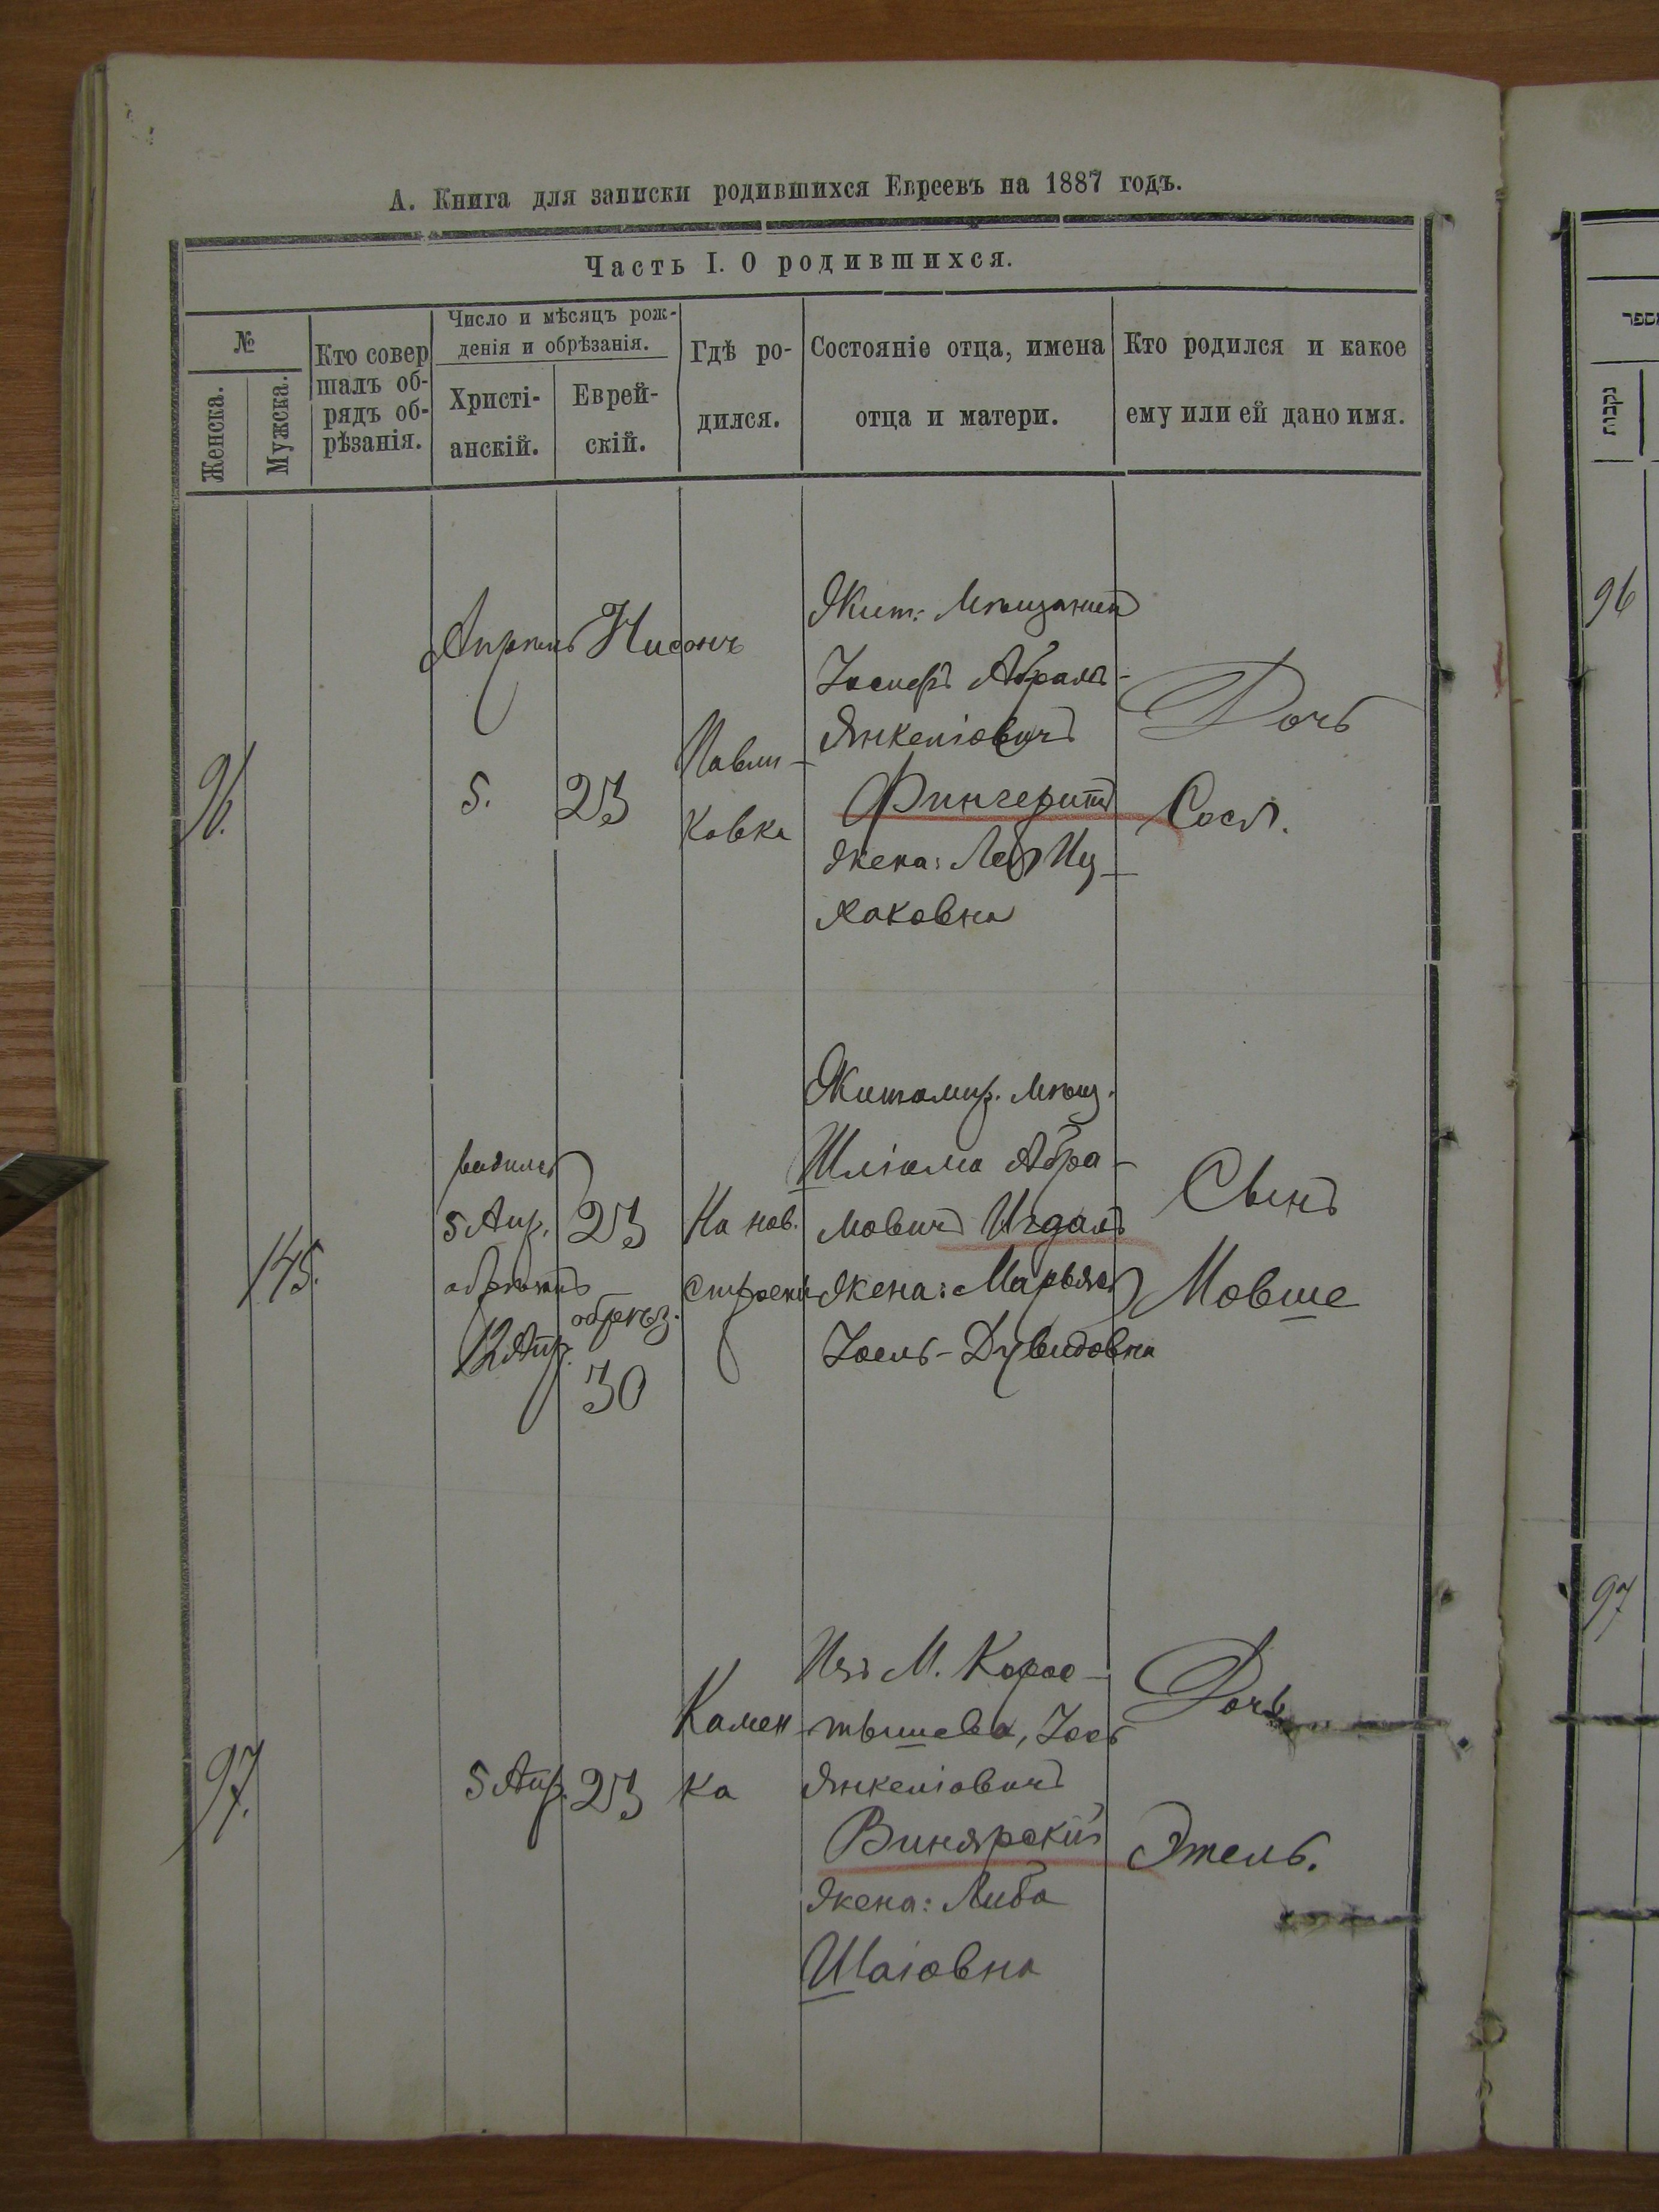 А. Книга для записки родившихся Евреевъ на 1887 годъ.
Часть I. О родившихся.
№
Женска.
Мужска.
Кто совер
шалъ об-
рядъ об-
рѣзанія.
Число и мѣсяцъ рож-
денія и обрѣзанія.
Христі-
анскій.
Еврей-
скій.
Гдѣ ро-
дился.
Состояніе отца, имена
отца и матери.
Кто родился и какое
ему или ей дано имя.
96.
Апрель
5.
Нисонъ
23
Павли-
ковка
Жит: Мѣщанинъ
Іосифъ Абрамъ-
Янкеліовичъ
Фингеритъ
Жена: Лея Иц-
хаковна
Дочь
Сося.
145.
родился
5 Апр.
обрѣзанъ
12 Апр.
23
обрѣз.
30
На нов.
строени
Житомир. Мѣщ.
Шліома Абра-
мовичъ Игдалъ
Жена: Марьяся
Іоель-Дувидовна
Сынъ
Мовше
97.
5 Апр.
23
Камен-
ка
Изъ М. Корос-
тышева, Іось
Янкеліовичъ
Винярскій
Жена: Либа
Шаіовна
Дочь
Этель.
מספר
נקבות
96
97